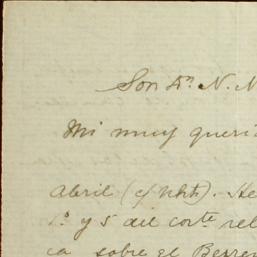 Son Dn. N. N
Mi muy queri
Abril (c/
1º y 5 del corte. rel
ca sobre el Berre